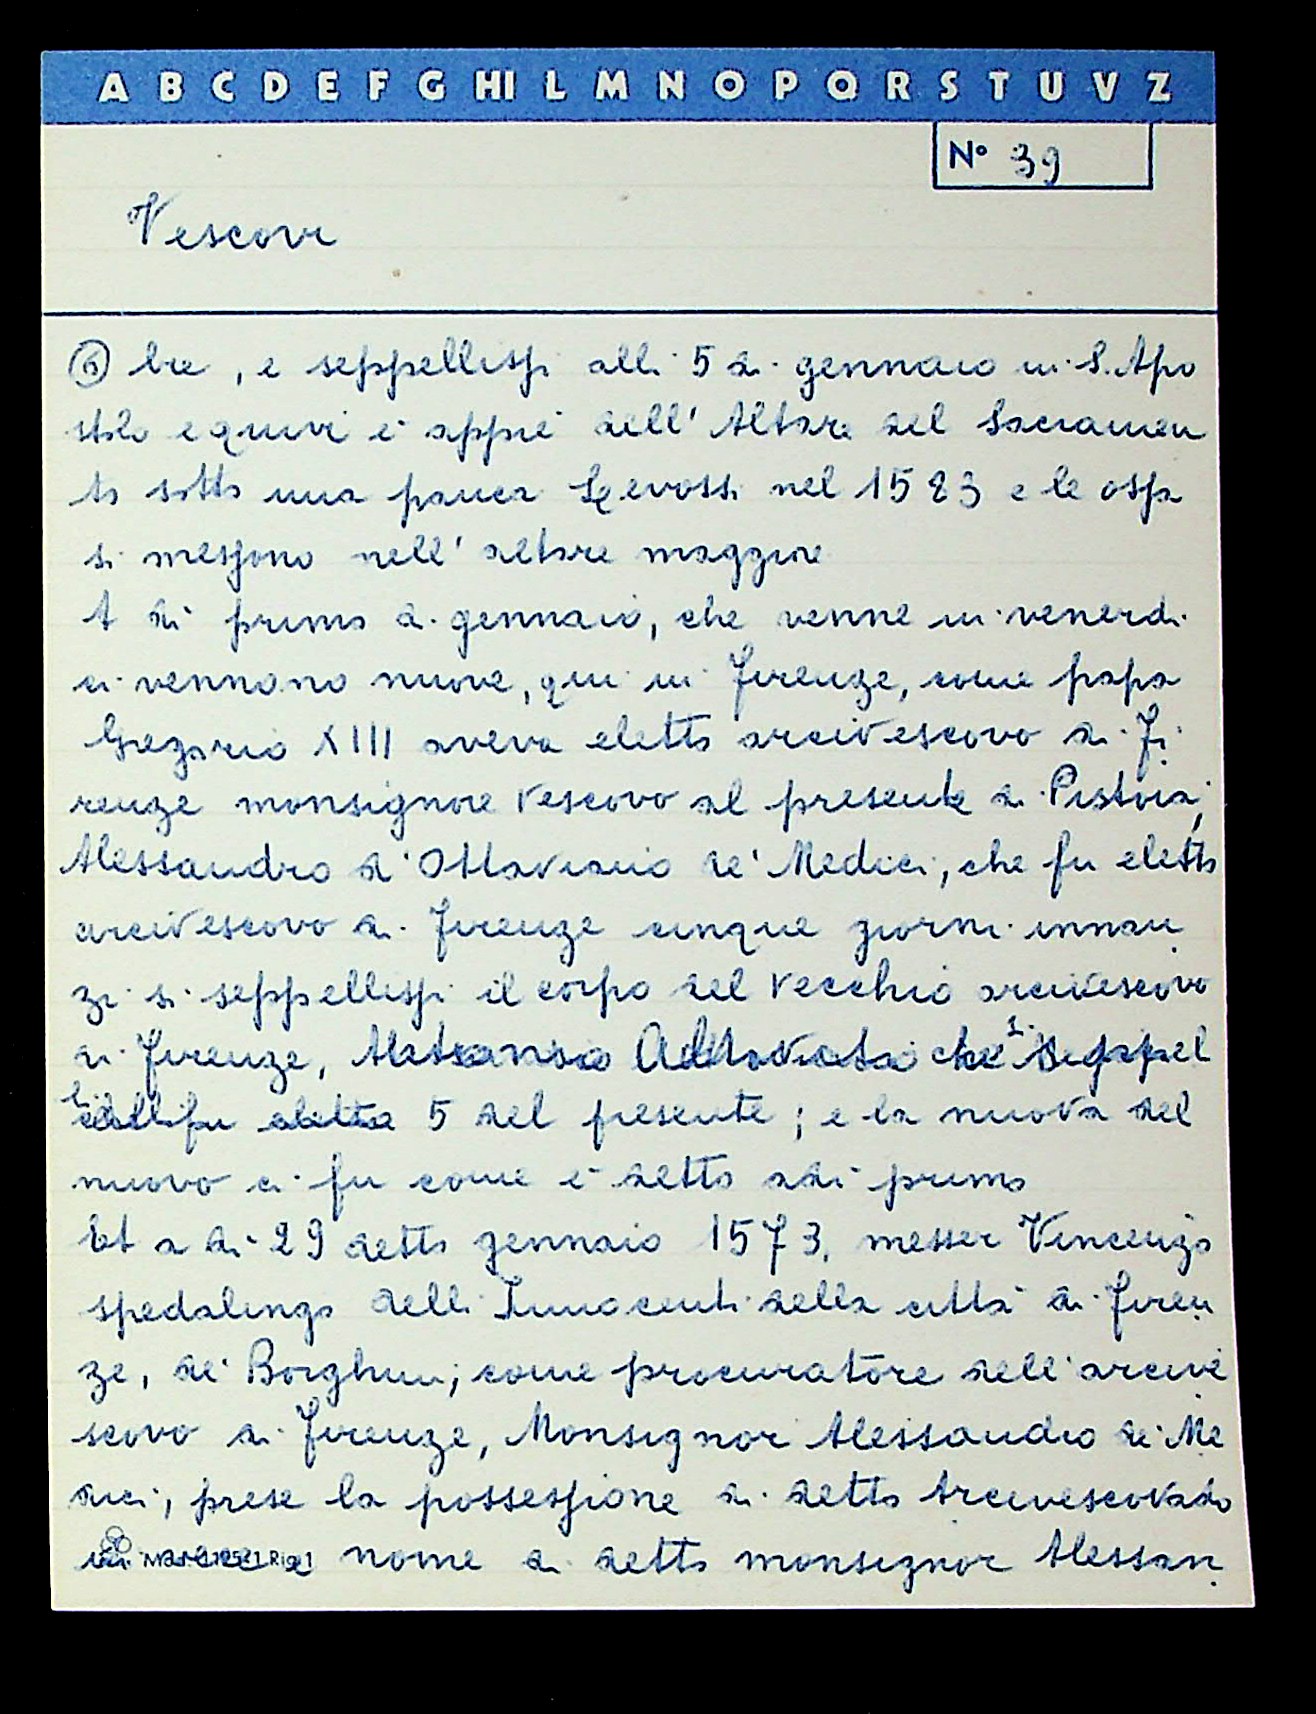 A B C D E F G H I L M N O P Q R S T U V Z
N° 39
Vescovi
⑥ bre, e seppellissi alli 5 di gennaio in S. Apo
stolo e quivi è appiè dell' Altare del Sacramen
to sotto una panca Levossi nel 1583 e le ossa
si messono nell' altare maggiore
A dì primo di gennaio, che venne in venerdi
ci vennono nuove, qui in Firenze, come papa
Gregorio XIII aveva eletto arcivescovo di Fi
renze monsignore vescovo al presente di Pistoia,
Alessandro d'Ottaviano de' Medici, che fu eletto
arcivescovo di Firenze cinque giorni innan
zi si seppellissi il corpo del vecchio arcivescovo
di Firenze, Altoviti che si seppel
lì 5 del presente; e la nuova del
nuovo ci fu come è detto adì primo
Et a dì 29 detto gennaio 1573, messer Vincenzo
spedalingo delli Innocenti della città di Firen
ze, de' Borghini; come procuratore dell'arcive
scovo di Firenze, Monsignor Alessandro de' Me
dici, prese la possessione di detto Arcivescovado
nome di detto monsignor Alessan